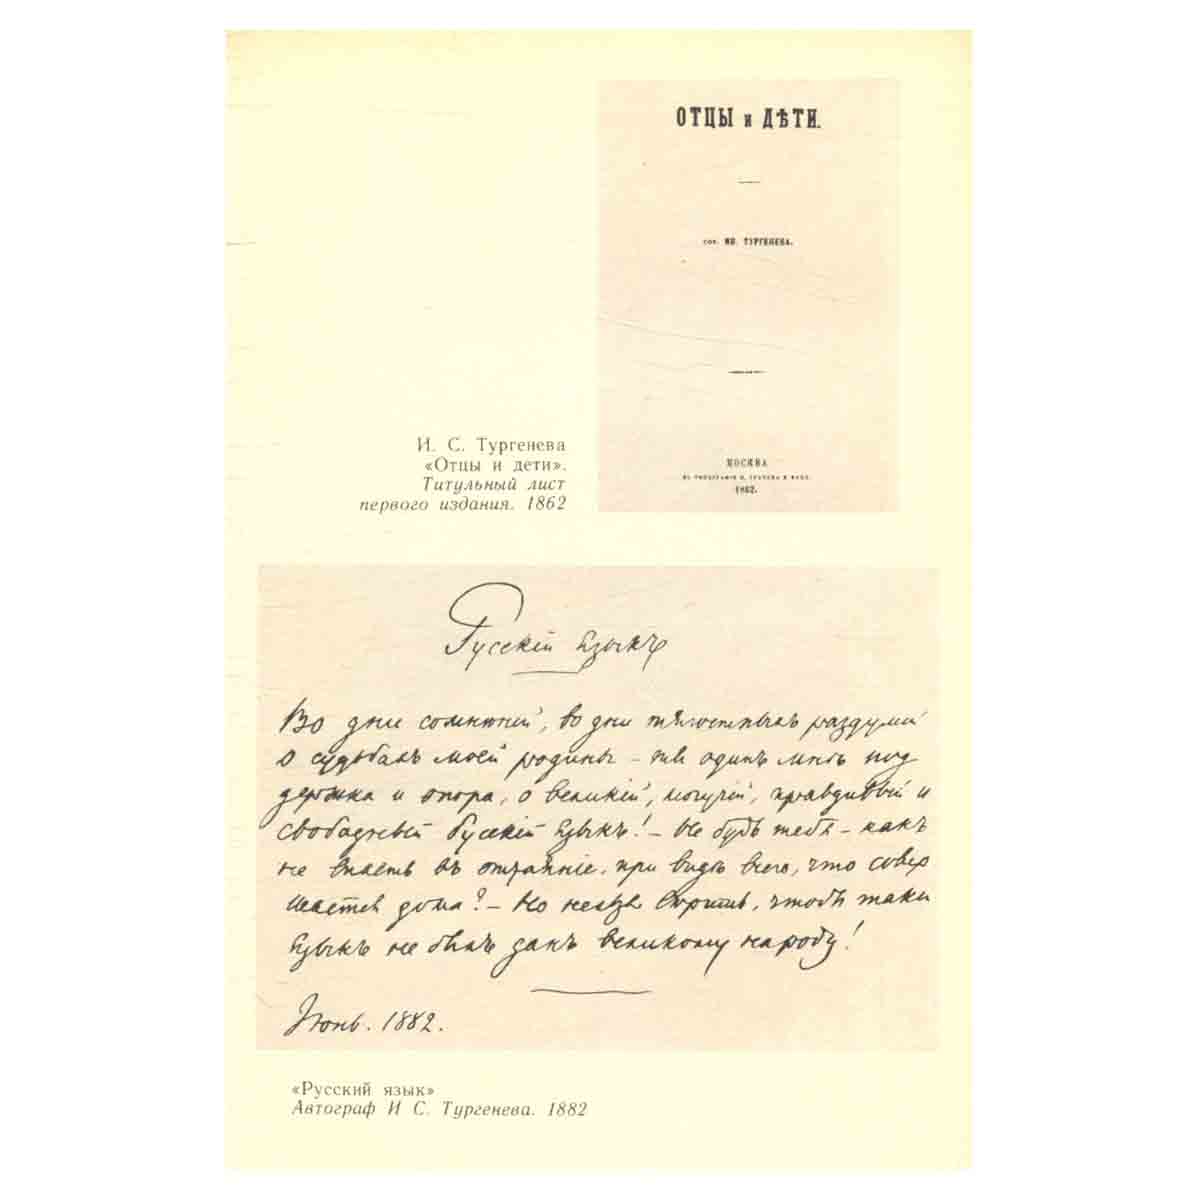 ОТЦЫ и ДѢТИ.
соч. ИВ. ТУРГЕНЕВА.
МОСКВА
въ типографіи В. Грачева и комп.
1862.
И. С. Тургенева
«Отцы и дети».
Титульный лист
первого издания. 1862
Русскій Языкъ
Во дни сомнѣній, во дни тягостныхъ раздумій
о судьбахъ моей родины – ты одинъ мнѣ под
держка и опора, о великій, могучій, правдивый и
свободный Русскій Языкъ! – Не будь тебя – какъ
не впасть въ отчаяніе, при видѣ всего, что совер
шается дома? – Но нельзя вѣрить, чтобы такой
языкъ не былъ данъ великому народу!
Іюнь. 1882.
«Русский язык»
Автограф И С. Тургенева. 1882